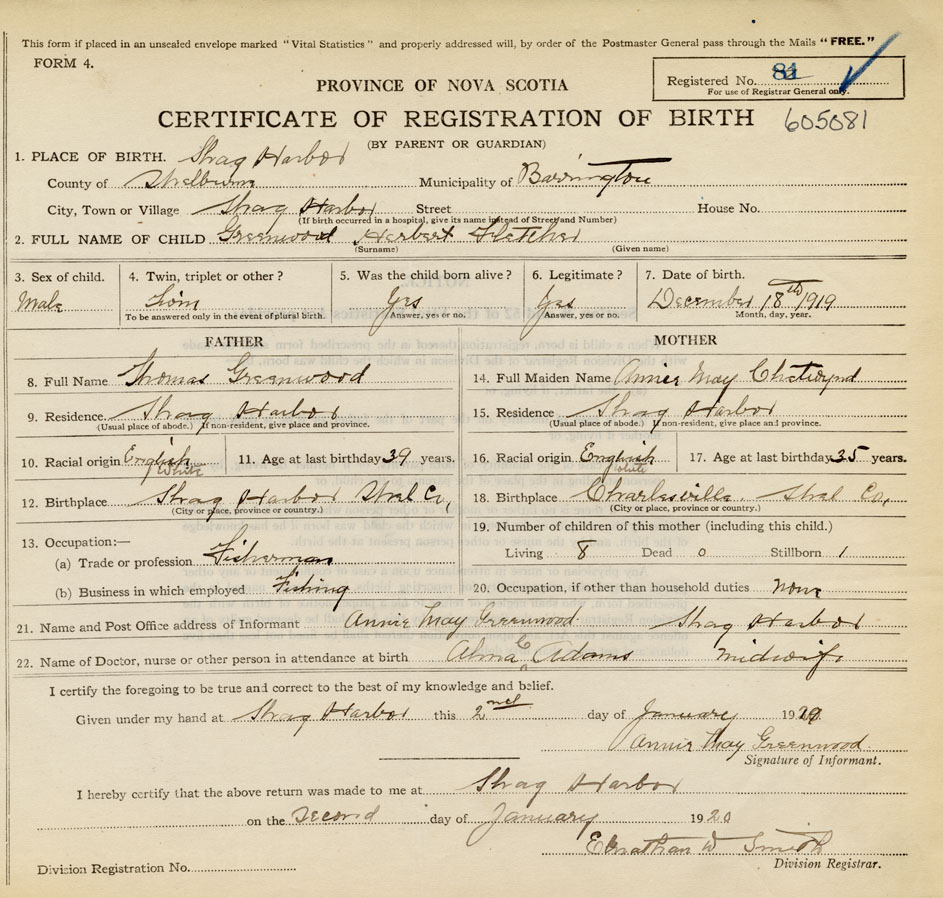 This form if placed in an unsealed envelope marked "Vital Statistics" and properly addressed will, by order of the Postmaster General pass through the Mails "FREE."
FORM 4.
Registered No. 81
For use of Registrar General only.
PROVINCE OF NOVA SCOTIA
CERTIFICATE OF REGISTRATION OF BIRTH 605081
(BY PARENT OR GUARDIAN)
1. PLACE OF BIRTH. Shag Harbor
County of Shelburne Municipality of Barrington
City, Town or Village Shag Harbor Street House No.
(If birth occurred in a hospital, give its name instead of Street and Number)
2. FULL NAME OF CHILD Greenwood Herbert Fletcher
(Surname) (Given name)
3. Sex of child. 4. Twin, triplet or other? 5. Was the child born alive? 6. Legitimate? 7. Date of birth.
Male Yes Yes December 18th 1919
To be answered only in the event of plural birth. Answer, yes or no. Answer, yes or no. Month, day, year.
FATHER MOTHER
8. Full Name Thomas Greenwood 14. Full Maiden Name Annie May Chetwynd
9. Residence Shag Harbor 15. Residence Shag Harbor
(Usual place of abode.) If non-resident, give place and province. (Usual place of abode.) If non-resident, give place and province.
10. Racial origin English White 11. Age at last birthday 39 years. 16. Racial origin English White 17. Age at last birthday 35 years.
12. Birthplace Shag Harbor Shel Co, 18. Birthplace Charlesville. Shel Co,
(City or place, province or country.) (City or place, province or country.)
13. Occupation:— 19. Number of children of this mother (including this child.)
(a) Trade or profession Fisherman Living 8 Dead 0 Stillborn 1
(b) Business in which employed Fishing 20. Occupation, if other than household duties None
21. Name and Post Office address of Informant Annie May Greenwood Shag Harbor
22. Name of Doctor, nurse or other person in attendance at birth Alma E Adams midwife
I certify the foregoing to be true and correct to the best of my knowledge and belief.
Given under my hand at Shag Harbor this 2nd day of January 19
Annie May Greenwood
Signature of Informant.
I hereby certify that the above return was made to me at Shag Harbor
on the Second day of January 1920
Elnathan D Smith
Division Registrar.
Division Registration No.